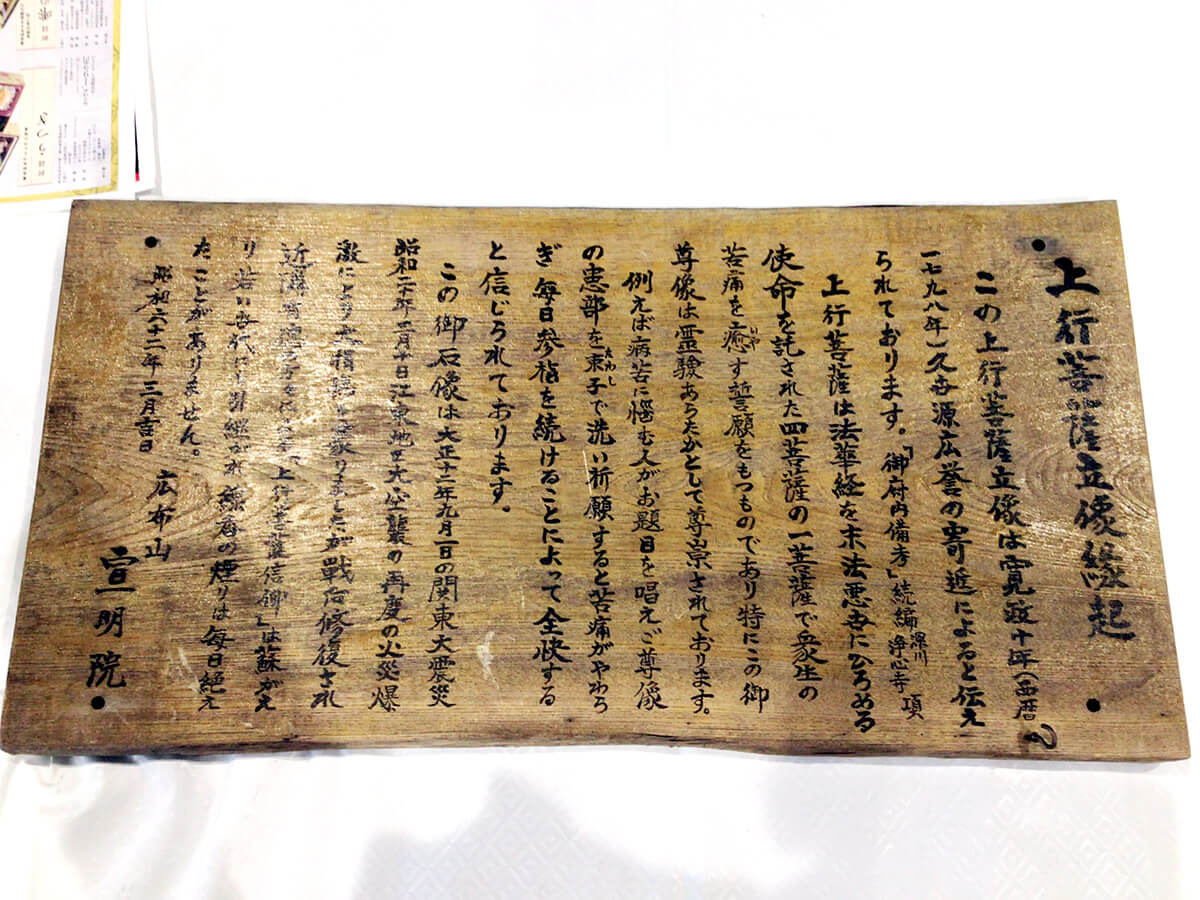 上行菩薩立像縁起
この上行菩薩立像は寛政十年(西暦
一七九八年)久谷源広誉の寄進によると伝え
られております。「御府内備考」続編 深川 浄心寺 項
上行菩薩は法華経を末法悪世にひろめる
使命を託された四菩薩の一菩薩で衆生の
苦痛を癒す誓願をもつものであり特にこの御
いや
尊像は霊験あらたかとして尊崇されております。
例えば病苦に悩む人がお題目を唱えご尊像
の患部を束子で洗い祈願すると苦痛がやわら
たわし
ぎ毎日参詣を続けることによって全快する
と信じられております。
この御石像は大正十二年九月一日の関東大震災
昭和二十年三月十日江東地区大空襲の再度の火災爆
激により大損傷を蒙りましたが戦后修復され
近隣 「上行菩薩信仰」は蘇がえ
り若い世代に引継がれ線香の煙りは毎日絶え
たことがありません。
昭和六十二年三月吉日
広布山
宣明院